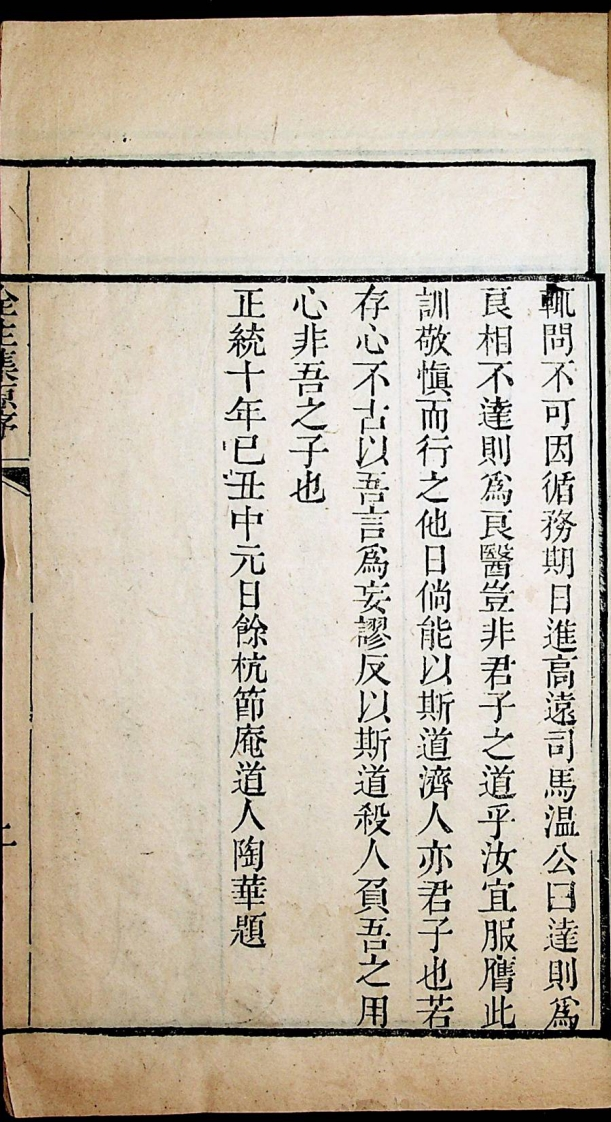 輒問不可因循務期日進高遠司馬溫公曰達則爲
良相不達則爲良醫豈非君子之道乎汝宜服膺此
訓敬慎而行之他日倘能以斯道濟人亦君子也若
存心不古以吾言爲妄謬反以斯道殺人負吾之用
心非吾之子也
正統十年已丑中元日餘杭節庵道人陶華題